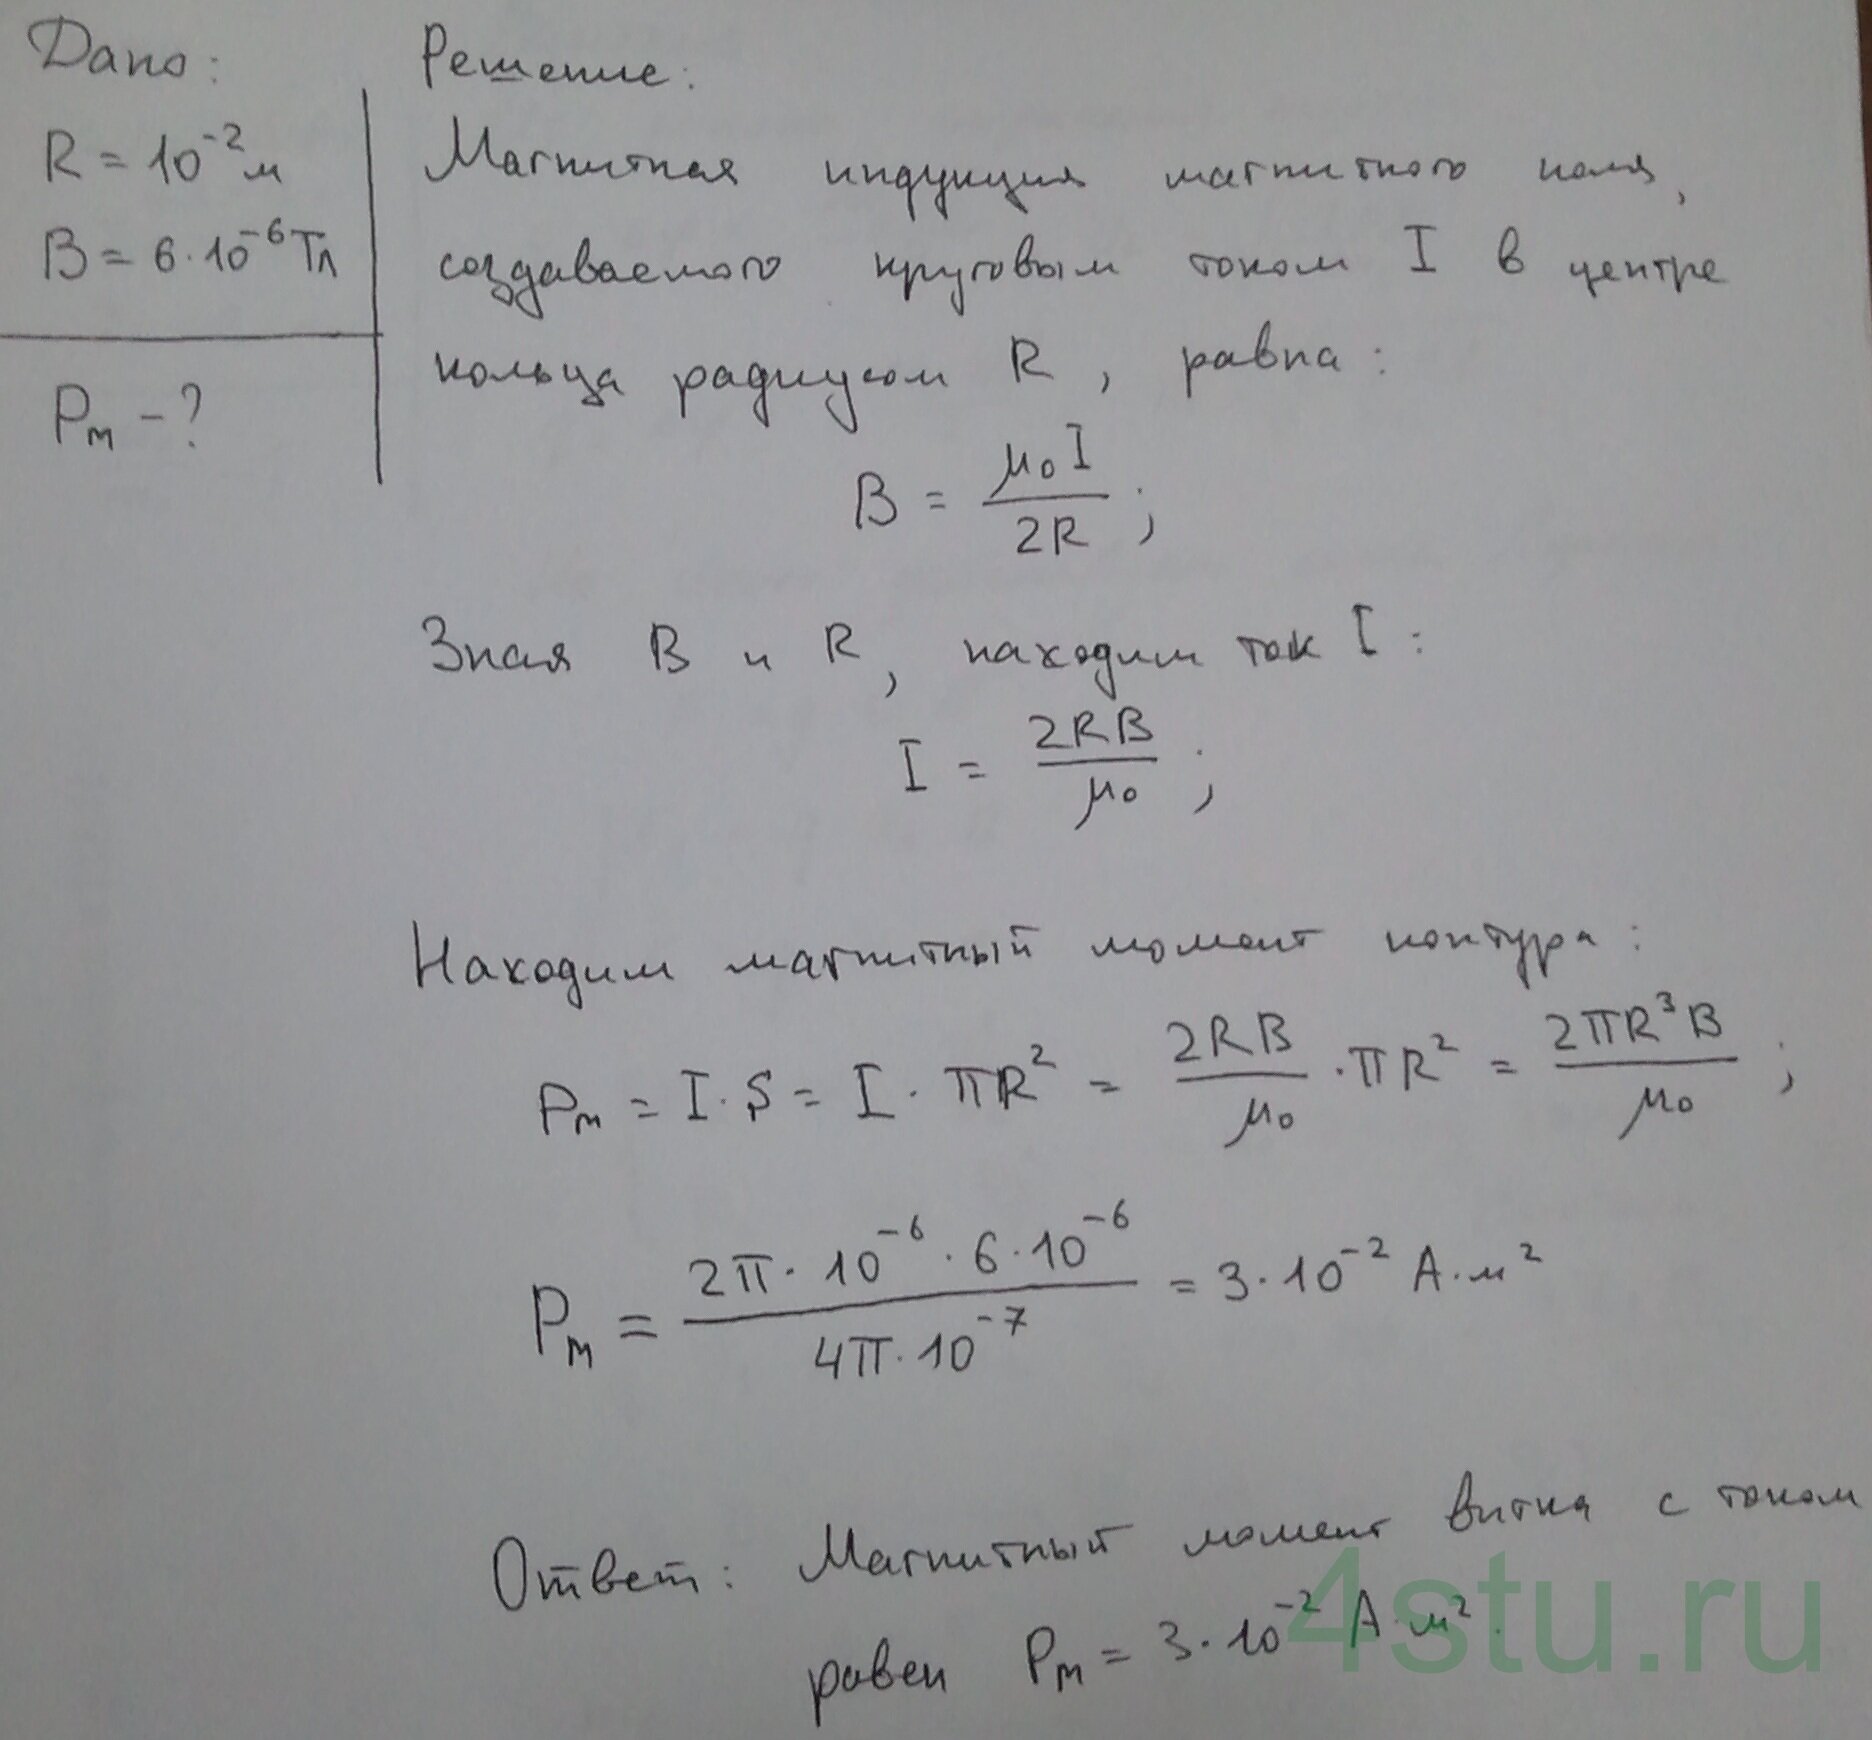 Дано:
R = 10⁻² м
B = 6·10⁻⁶ Тл
Pm - ?
Решение:
Магнитная индукция магнитного поля,
создаваемого круговым током I в центре
кольца радиусом R, равна:
B = μ₀I / 2R ;
Зная B и R, находим ток I:
I = 2RB / μ₀ ;
Находим магнитный момент контура:
Pm = I·S = I·πR² = 2RB / μ₀ ·πR² = 2πR³B / μ₀ ;
Pm = 2π·10⁻⁶·6·10⁻⁶ / 4π·10⁻⁷ = 3·10⁻² А·м²
Ответ: Магнитный момент витка с током
равен Pm = 3·10⁻² А·м².
4stu.ru